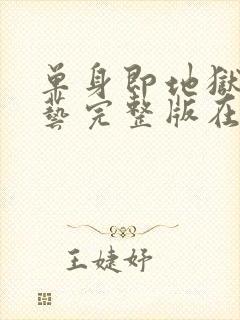 单身即地獄
藝完整版在
王婕妤